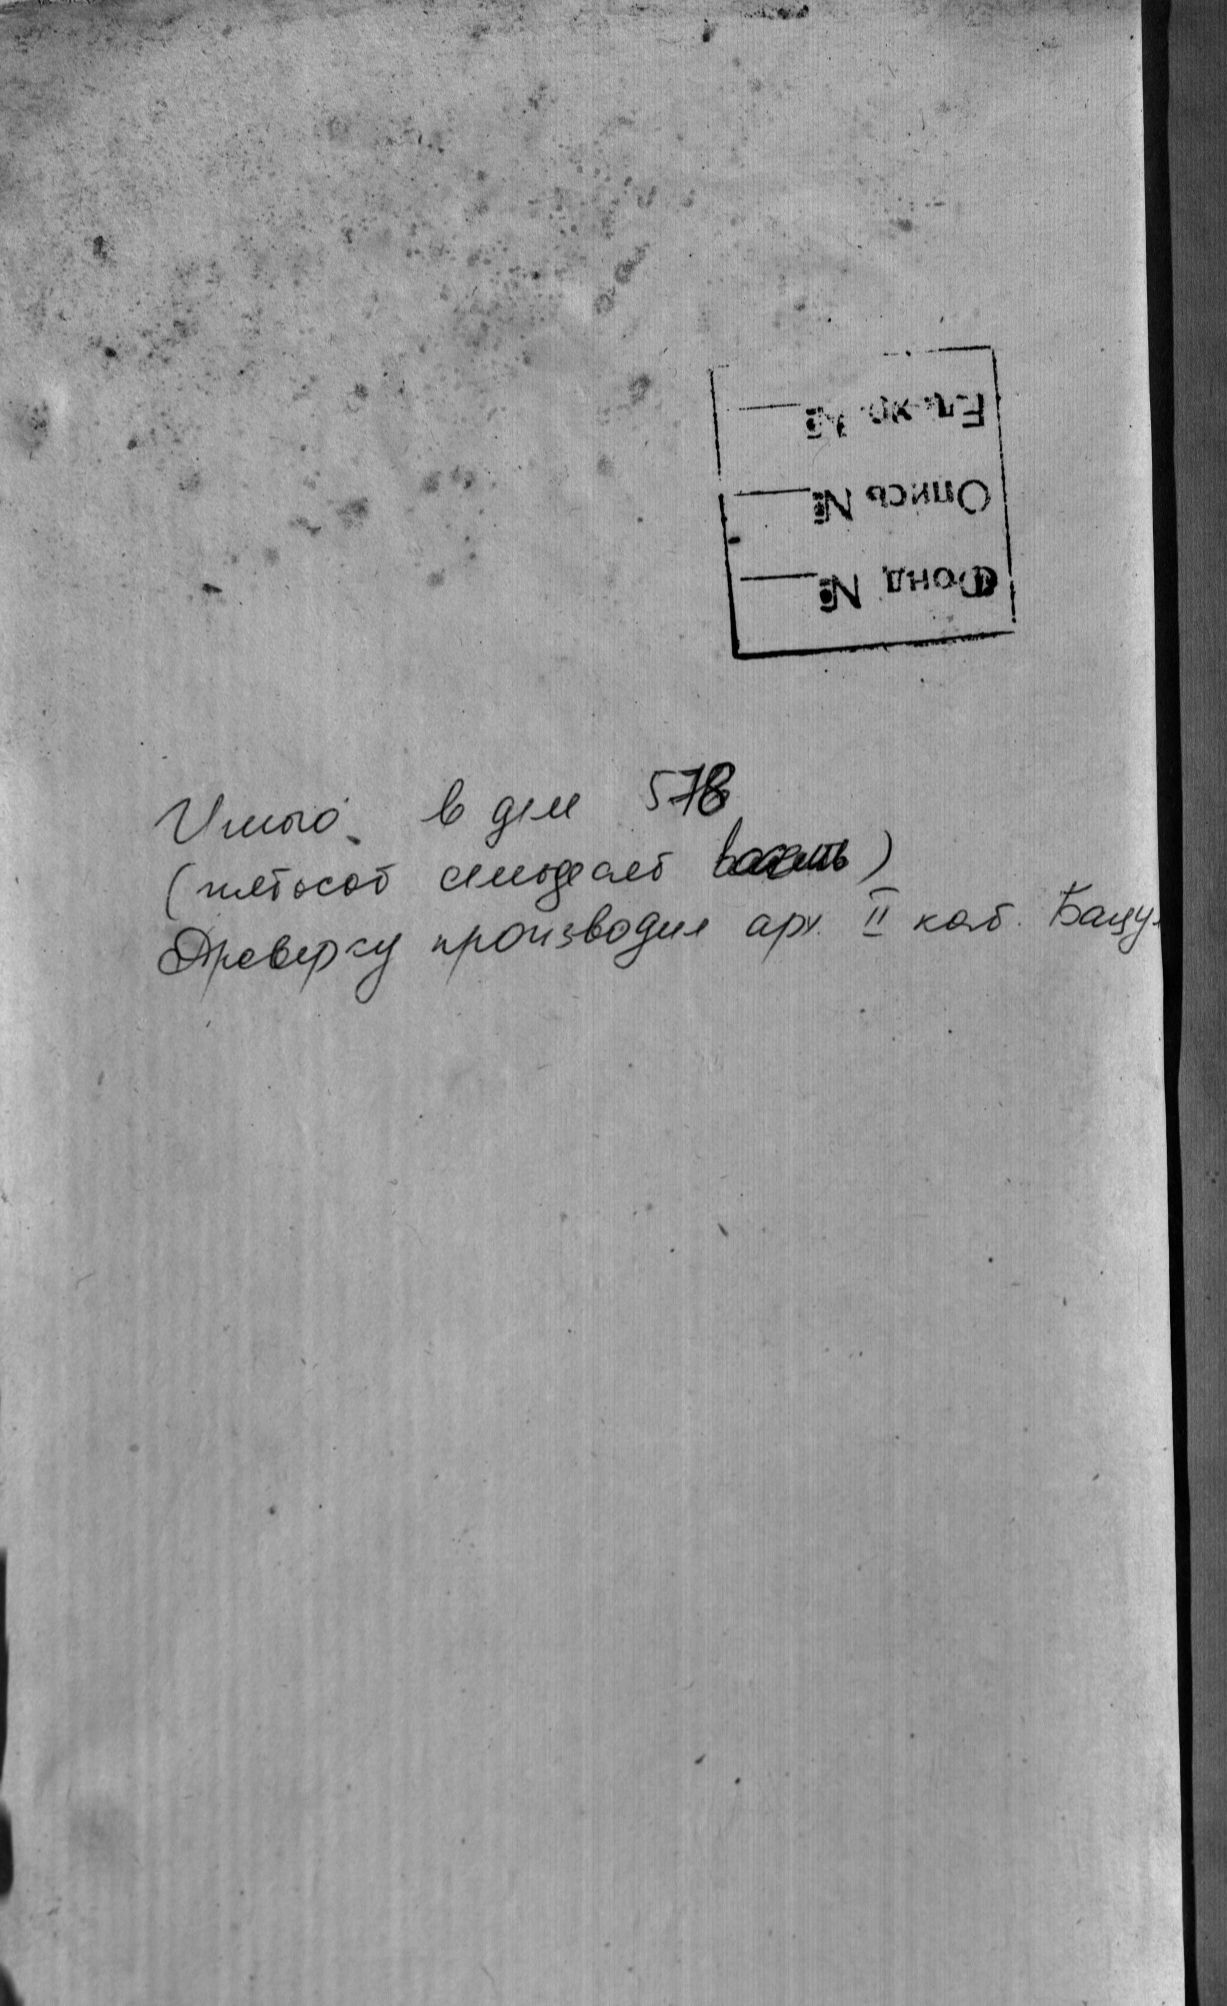 Ед. хр. №
Опись №
Фонд №
Итого в деле 578
(пятьсот семьдесят восемь)
Проверку производил арх. II каб. Бацу